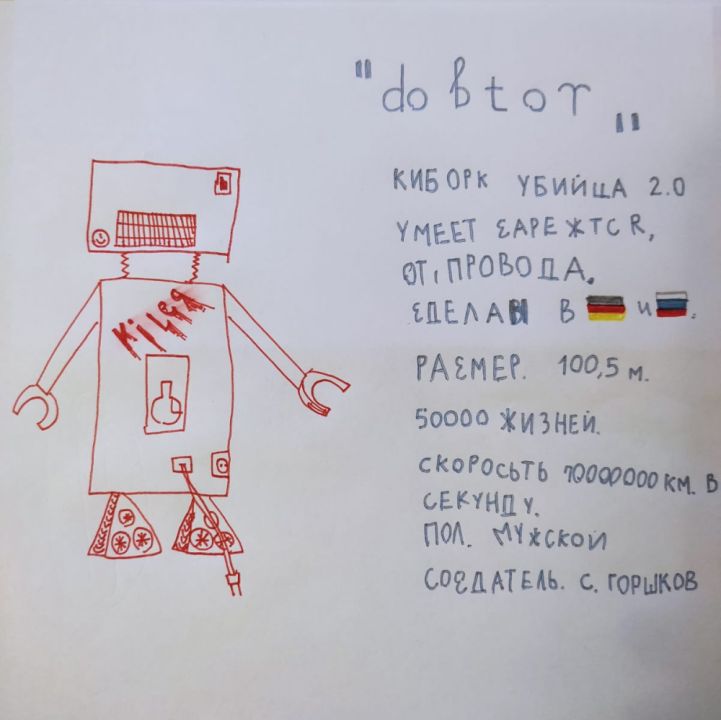 "dobtor"
КИБОРК УБИЙЦА 2.0
УМЕЕТ ЗАРЕЖТСR,
ОТ, ПРОВОДА.
ЗДЕЛАН В И .
РАЗМЕР. 100,5 м.
50000 ЖИЗНЕЙ.
СКОРОСЬТЬ 10000000 КМ. В
СЕКУНДУ.
ПОЛ. МУЖСКОЙ
СОЗДАТЕЛЬ. С. ГОРШКОВ